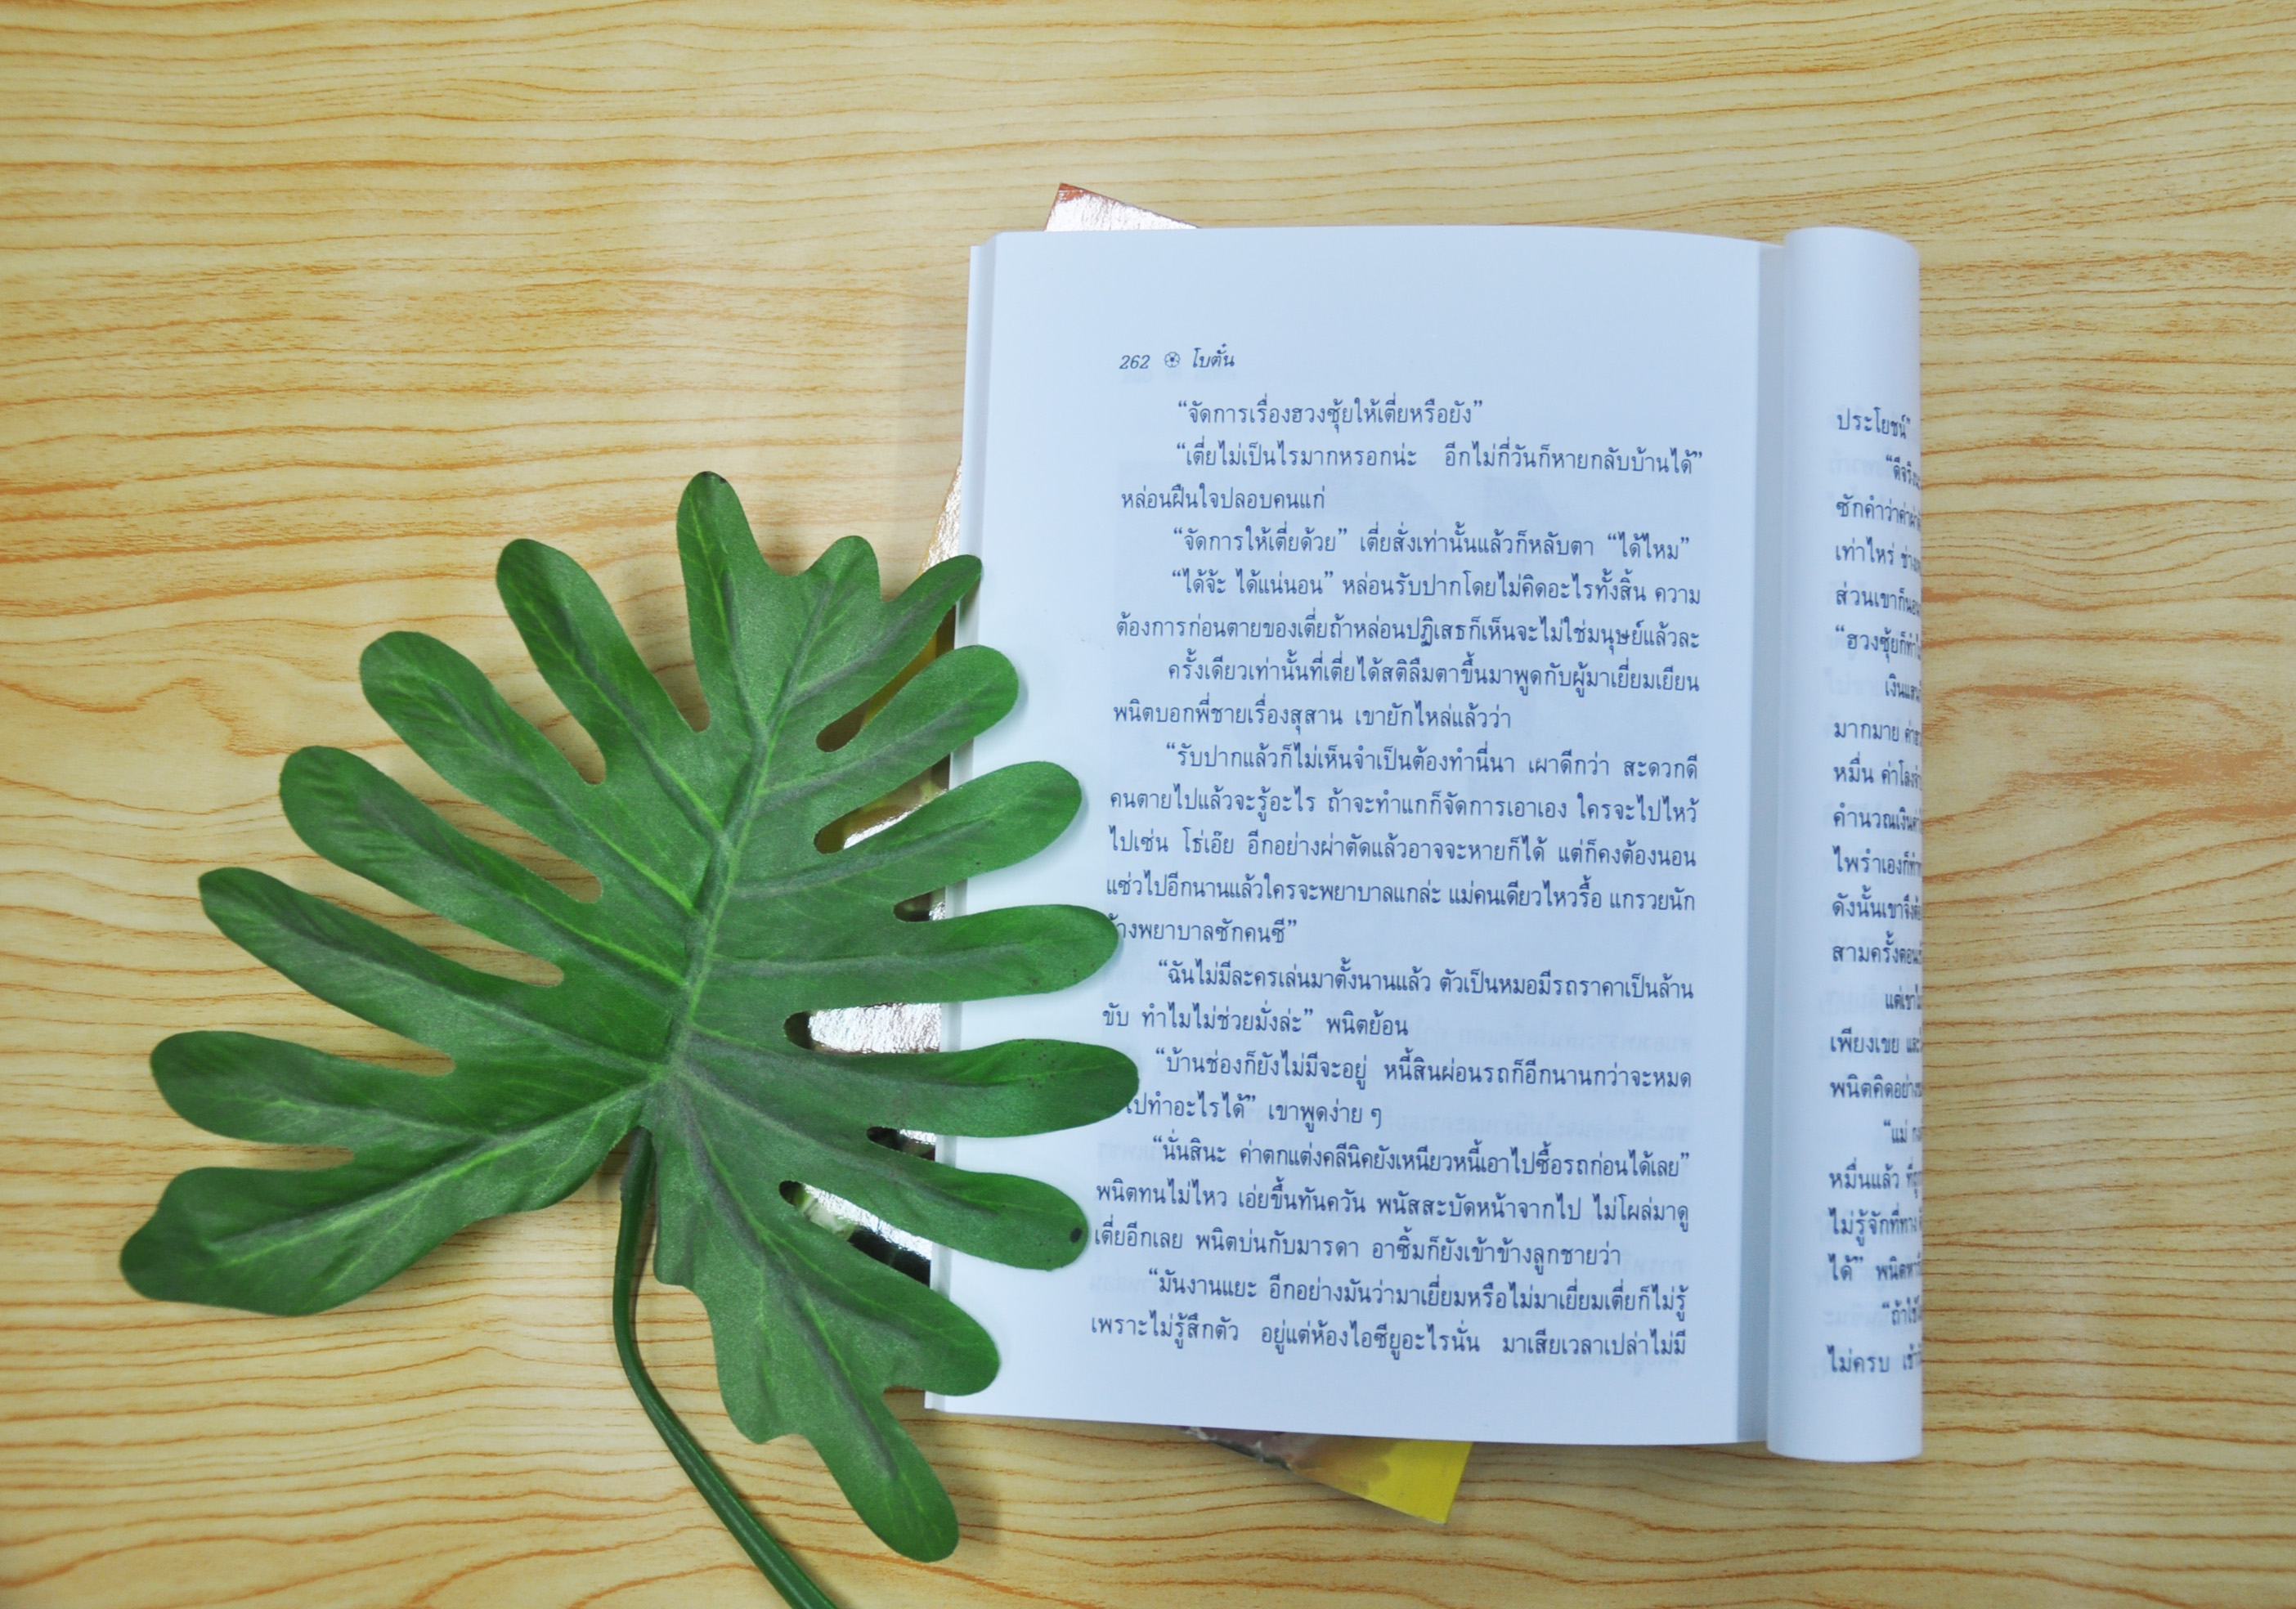 262 โบตั๋น
“จัดการเรื่องฮวงซุ้ยให้เตี่ยหรือยัง”
“เตี่ยไม่เป็นไรมากหรอกน่ะ อีกไม่กี่วันก็หายกลับบ้านได้”
หล่อนฝืนใจปลอบคนแก่
“จัดการให้เตี่ยด้วย” เตี่ยสั่งเท่านั้นแล้วก็หลับตา “ได้ไหม”
“ได้จ้ะ ได้แน่นอน” หล่อนรับปากโดยไม่คิดอะไรทั้งสิ้น ความ
ต้องการก่อนตายของเตี่ยถ้าหล่อนปฏิเสธก็เห็นจะไม่ใช่มนุษย์แล้วละ
ครั้งเดียวเท่านั้นที่เตี่ยได้สติลืมตาขึ้นมาพูดกับผู้มาเยี่ยมเยียน
พนิตบอกพี่ชายเรื่องสุสาน เขายักไหล่แล้วว่า
“รับปากแล้วก็ไม่เห็นจำเป็นต้องทำนี่นา เผาดีกว่า สะดวกดี
คนตายไปแล้วจะรู้อะไร ถ้าจะทำแกก็จัดการเอาเอง ใครจะไปไหว้
ไปเซ่น โธ่เอ๊ย อีกอย่างผ่าตัดแล้วอาจจะหายก็ได้ แต่ก็คงต้องนอน
แซ่วไปอีกนานแล้วใครจะพยาบาลแกล่ะ แม่คนเดียวไหวรื้อ แกรวยนัก
พยาบาลซักคนซี”
“ฉันไม่มีละครเล่นมาตั้งนานแล้ว ตัวเป็นหมอมีรถราคาเป็นล้าน
ขับ ทำไมไม่ช่วยมั่งล่ะ” พนิตย้อน
“บ้านช่องก็ยังไม่มีจะอยู่ หนี้สินผ่อนรถก็อีกนานกว่าจะหมด
ไปทำอะไรได้” เขาพูดง่าย ๆ
“นั่นสินะ ค่าตกแต่งคลีนิคยังเหนียวหนี้เอาไปซื้อรถก่อนได้เลย”
พนิตทนไม่ไหว เอ่ยขึ้นทันควัน พนัสสะบัดหน้าจากไป ไม่โผล่มาดู
เตี่ยอีกเลย พนิตบ่นกับมารดา อาซิ้มก็ยังเข้าข้างลูกชายว่า
“มันงานแยะ อีกอย่างมันว่ามาเยี่ยมหรือไม่มาเยี่ยมเตี่ยก็ไม่รู้
เพราะไม่รู้สึกตัว อยู่แต่ห้องไอซียูอะไรนั่น มาเสียเวลาเปล่าไม่มี
ประโยชน์”
ซักคำว่าค่าผ่า
เท่าไหร่
ส่วนเขาก็
“ฮวงซุ้ยก็
มากมาย
หมื่น
คำนวณเงิน
ไพรำเองก็
ดังนั้นเขาจึง
สามครั้งตอน
แต่เขา
เพียงเขย และ
พนิตคิดอย่าง
“แม่
หมื่นแล้ว
ไม่รู้จักที่ทาง
ได้” พนิต
“ถ้า
ไม่ครบ